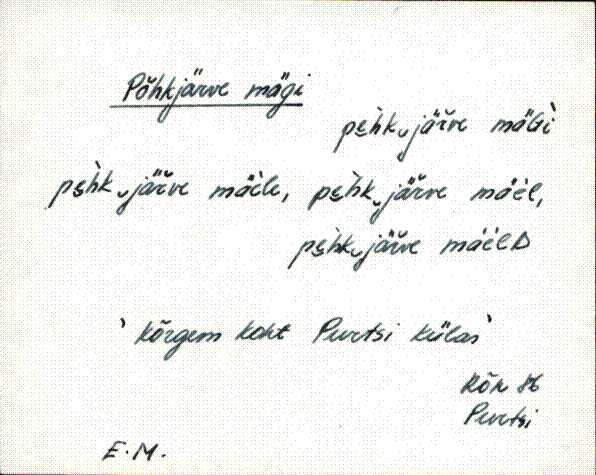 Põhkjärve mägi
pe̮h̀kᴗjäřve mäGì
pe̮h̀kᴗjäřve mäèle, pe̮h̀kᴗjäřve mäèl,
pe̮h̀kᴗjäřve mäèlD
‵kõrgem koht Purtsi külas‵
Purtsi
E.M.